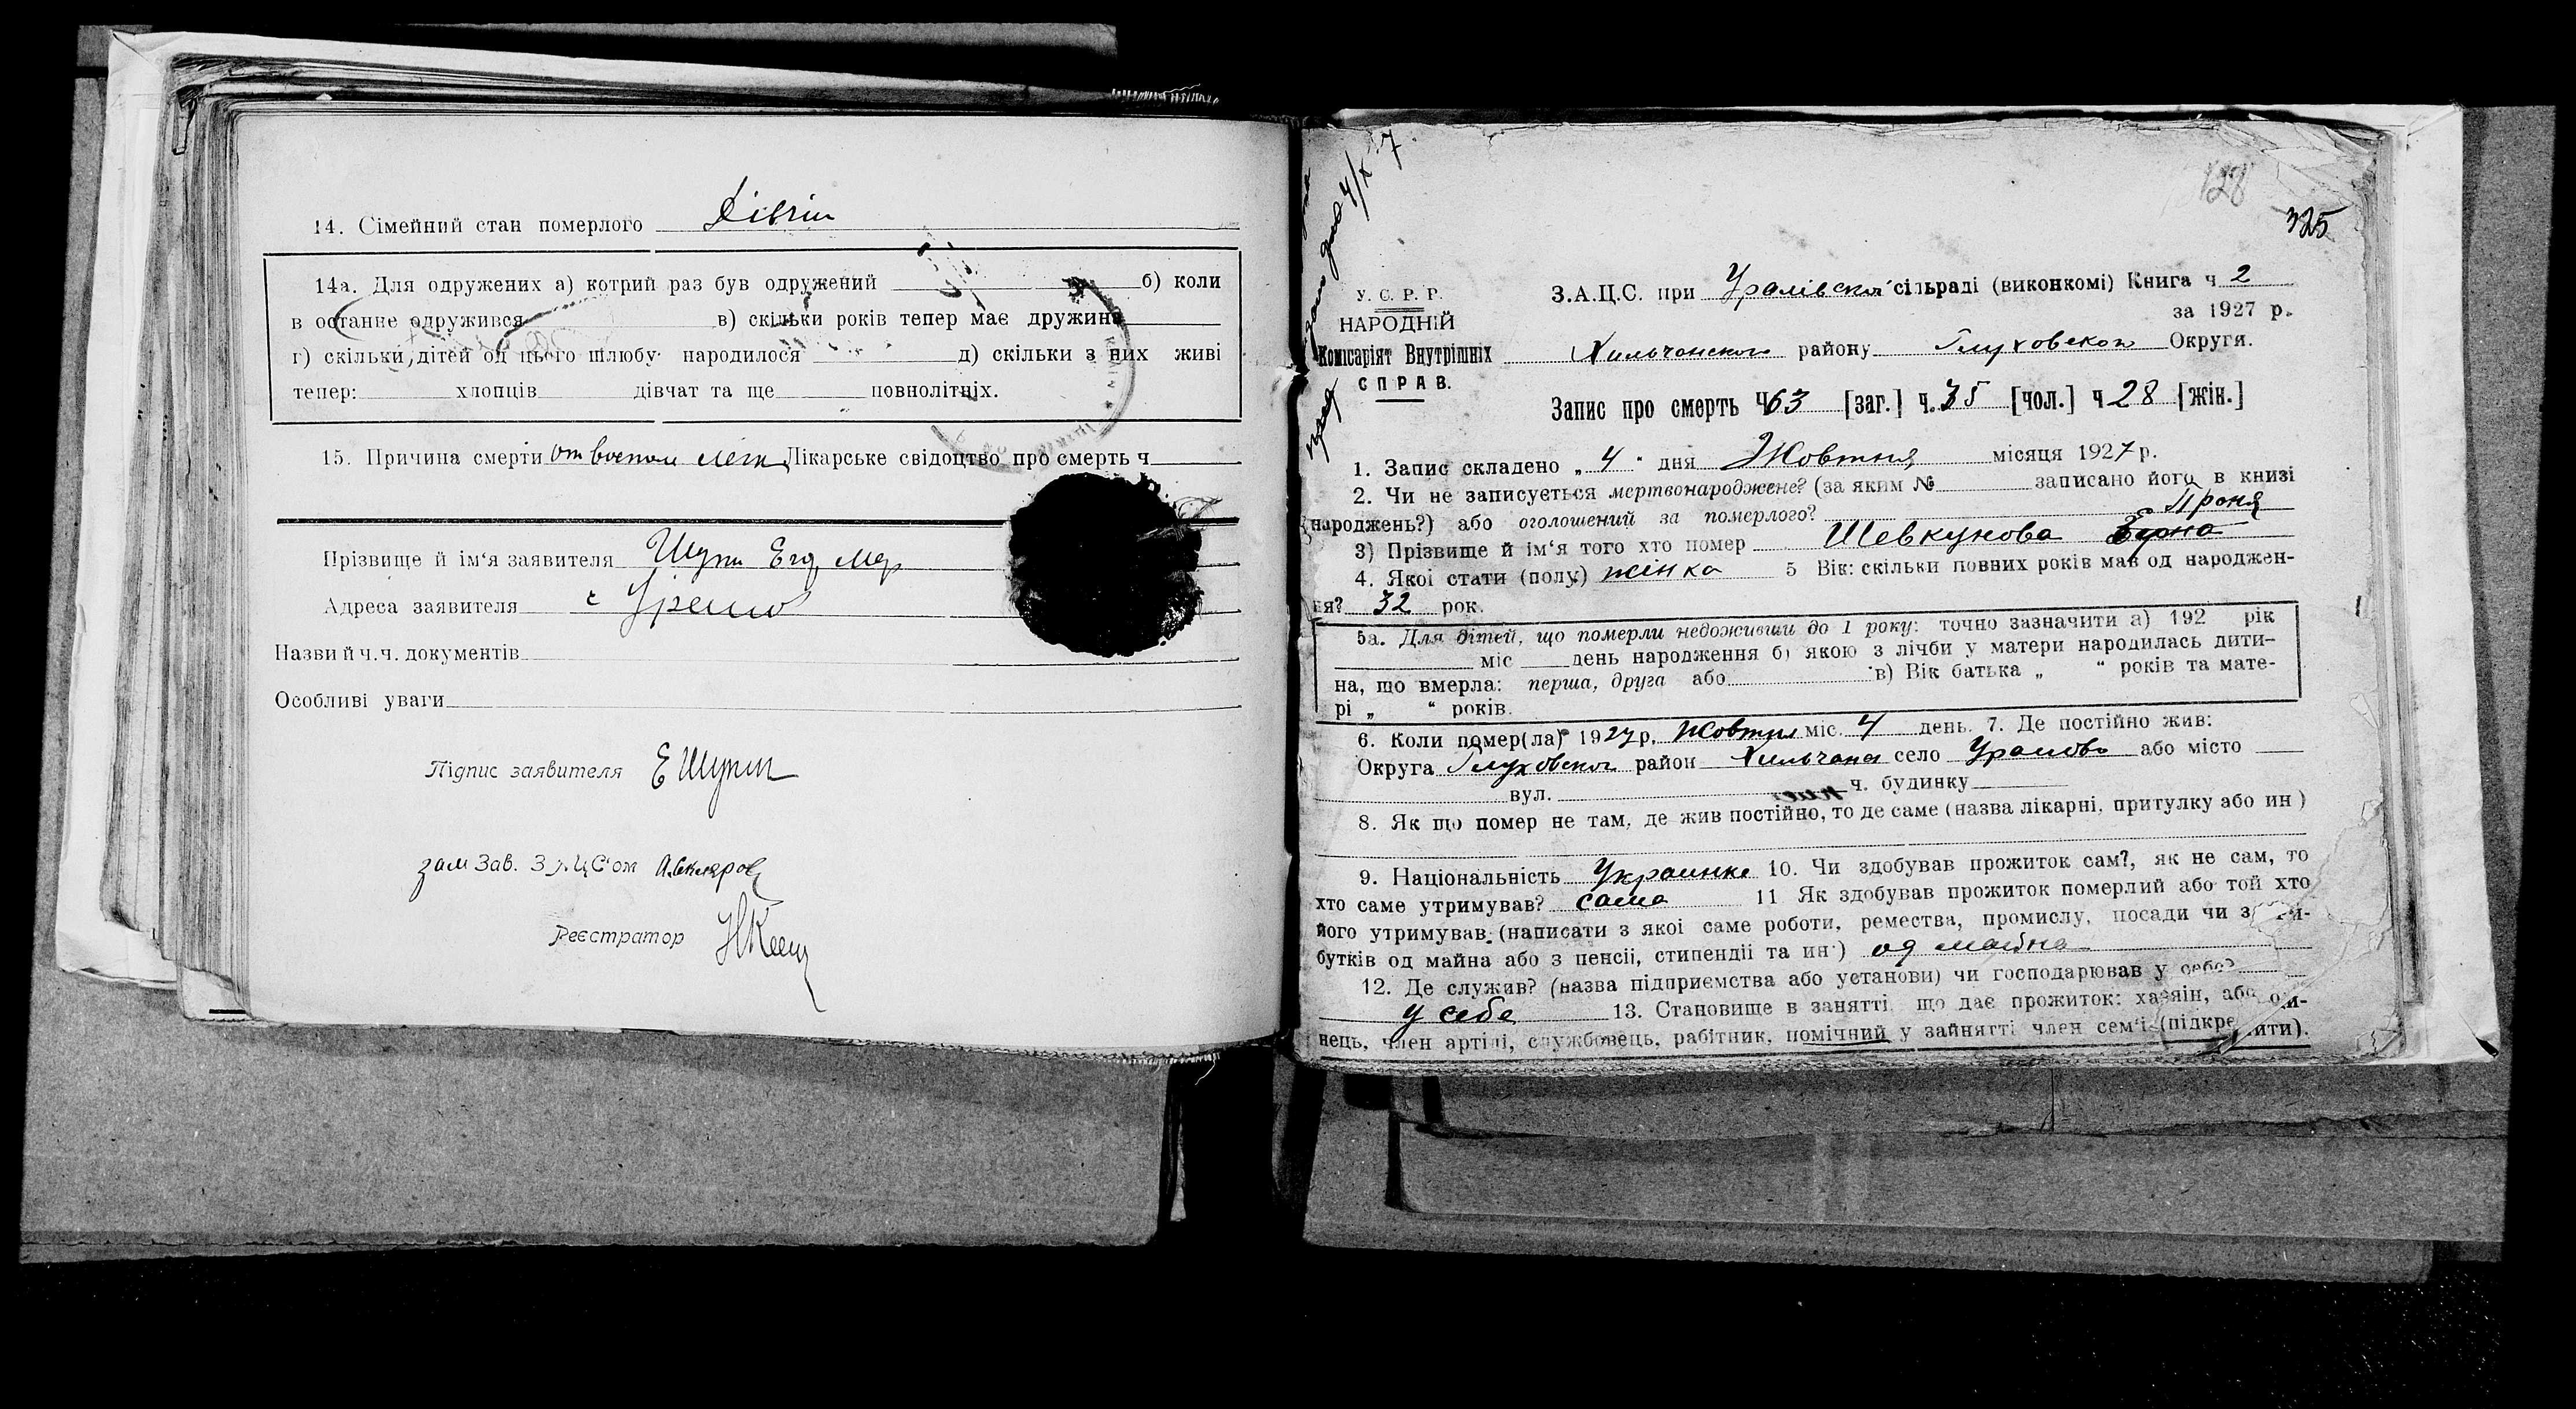 14. Сімейний стан померлого
14а. Для одружених а) котрий раз був одружений б) коли
в останнє одружився в) скільки років тепер має дружина
г) скільки дітей од цього шлюбу народилося д) скільки з них живі
тепер: хлопців дівчат та ще повнолітніх.
15. Причина смерти от воспал легк Лікарське свідоцтво про смерть ч
Прізвище й ім‘я заявителя
Адреса заявителя с
Назви й ч.ч. документів
Особливі уваги
Підпис заявителя
зам Зав. ЗАЦС‘ом
Реєстратор
128
325
У. С. Р. Р.
НАРОДНІЙ
Комісаріят Внутрішніх
СПРАВ.
З.А.Ц.С. при сільраді (виконкомі) Книга ч 2
за 1927 р.
Хильчанского району Глуховской Округи.
Запис про смерть Ч 63 [заг.] ч. 35 [чол.] ч 28 [жін.]
1. Запис складено „ 4 “ дня Жовтня місяця 1927 р.
2. Чи не записується мертвонароджене? (за яким № записано його в книзі
народжень?) або оголошений за померлого?
3) Прізвище й ім‘я того хто помер Шевкунова
4. Якої стати (полу) жінка 5 Вік: скільки повних років мав од народжен-
ня? 32 рок.
5а. Для дітей, що померли недоживши до 1 року: точно зазначити а) 192 рік
міс день народження б) якою з лічби у матери народилась дити-
на, що вмерла: перша, друга або в) Вік батька „ “ років та мате-
рі „ “ років.
6. Коли помер(ла) 1927 р. Жовтня міс. 4 день. 7. Де постійно жив:
Округа Глуховской район село або місто
вул. ч. будинку
8. Як що помер не там, де жив постійно, то де саме (назва лікарні, притулку або ин )
9. Національність Украинка 10. Чи здобував прожиток сам?, як не сам, то
хто саме утримував? сама 11 Як здобував прожиток померлий або той хто
його утримував (написати з якої саме роботи, ремества, промислу, посади чи з
бутків од майна або з пенсії, стипендії та ин ) од майна
12. Де служив? (назва підприємства або установи) чи господарював у себе?
у себе 13. Становище в занятті що дає прожиток: хазяін, або
нець, член артілі, службовець, рабітник, помічний у зайнятті член сем‘ї